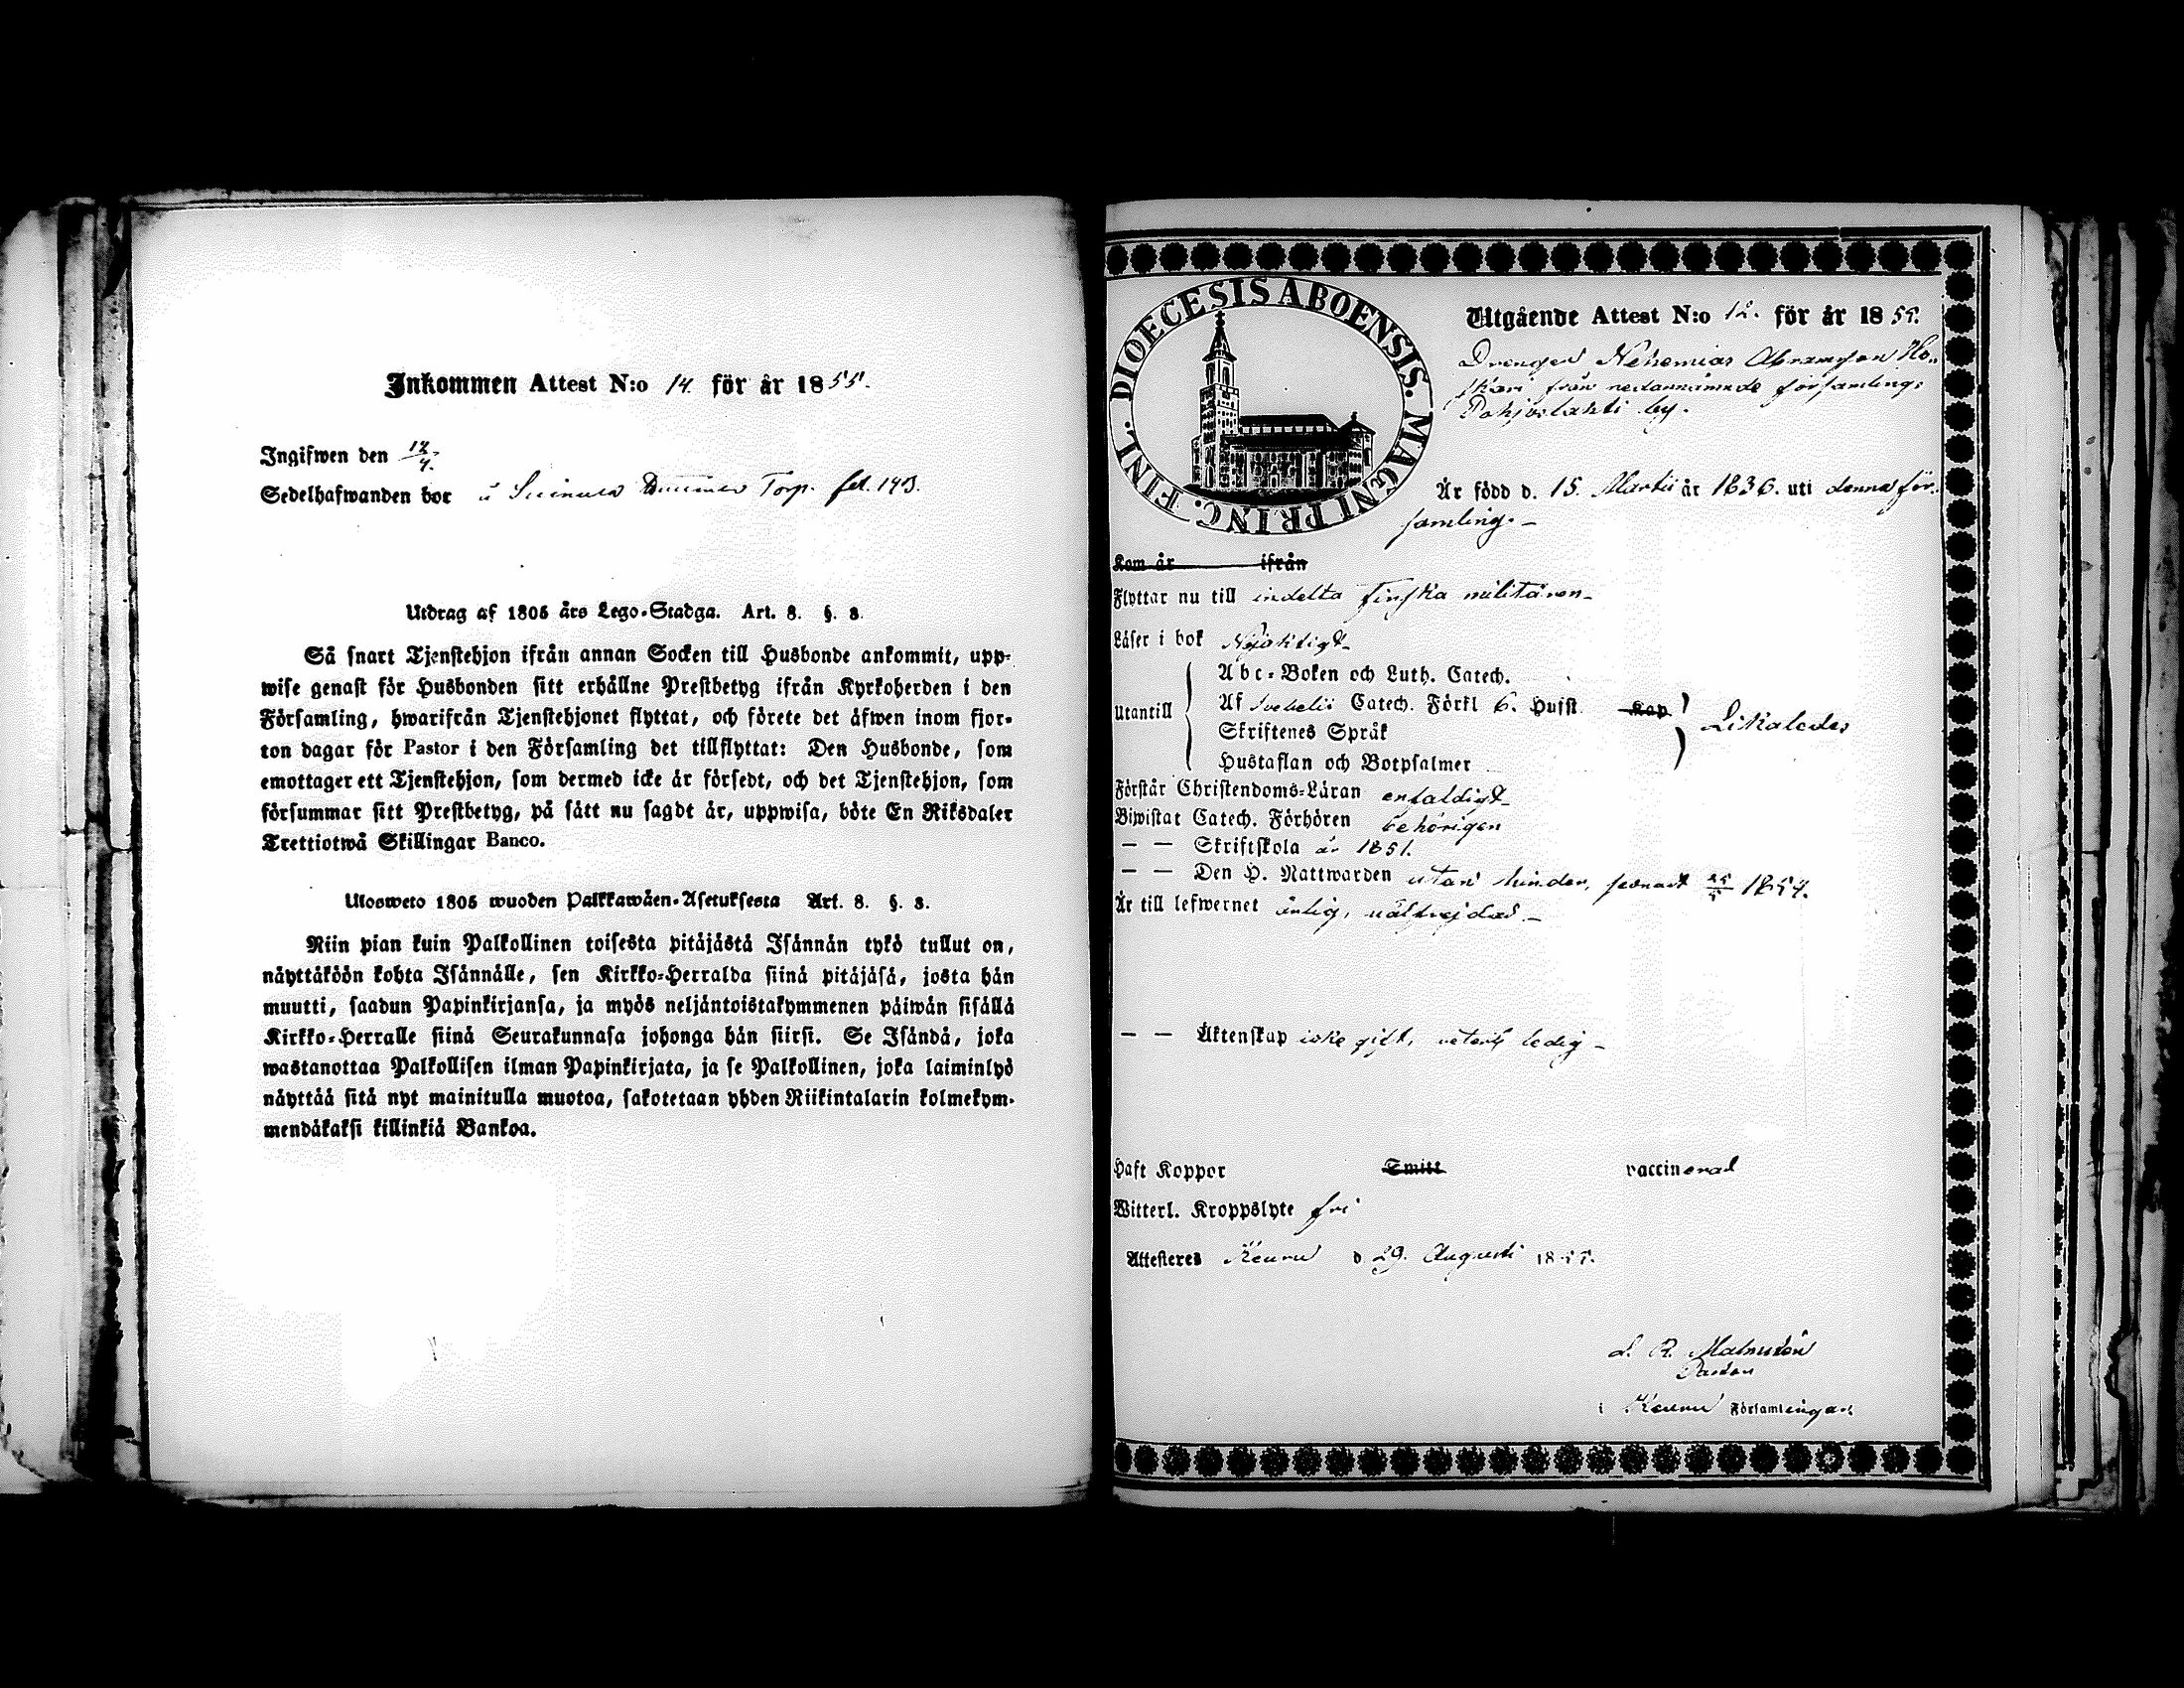 Inkommen Attest N:o 14. för år 1855.
Ingifwen den 12/4.
Sedelhafwanden bor Torp. fol. 193.
Utdrag af 1805 års Lego-Stadga. Art. 8. §. 8.
Så snart Tjenstehjon ifrån annan Socken till Husbonde ankommit, upp-
wise genast för Husbonden sitt erhållne Prestbetyg ifrån Kyrkoherden i den
Församling, hwarifrån Tjenstehjonet flyttat, och förete det äfwen inom fjor-
ton dagar för Pastor i den Församling det tillflyttat: Den Husbonde, som
emottager ett Tjenstehjon, som dermed icke är försedt, och det Tjenstehjon, som
försummar sitt Prestbetyg, på sätt nu sagdt är, uppwisa, böte En Riksdaler
Trettiotwå Skillingar Banco.
Ulosweto 1805 wuoden Palkkawäen-Asetuksesta Art. 8. §. 8.
Niin pian kuin Palkollinen toisesta pitäjästä Isännän tykö tullut on,
näyttäköön kohta Isännälle, sen Kirkko-Herralda siinä pitäjäsä, josta hän
muutti, saadun Papinkirjansa, ja myös neljäntoistakymmenen päiwän sisällä
Kirkko-Herralle siinä Seurakunnasa johonga hän siirsi. Se Isändä, joka
wastanottaa Palkollisen ilman Papinkirjata, ja se Palkollinen, joka laiminlyö
näyttää sitä nyt mainitulla muotoa, sakotetaan yhden Riikintalarin kolmekym-
mendäkaksi killinkiä Bankoa.
DIOECESIS ABOENSIS. MAGNI PRINC. FINL.
Utgående Attest N:o 12. för år 1855.
Drengen Nehemias Abramson Ho-
skari från nedannämnde församlings
Pohjoslahti by.
Är född d. 15. Martii år 1836. uti denna för-
samling. -
Kom år ifrån
Flyttar nu till indelta finska militären-
Läser i bok Nöjaktigt-
Utantill
Abc-Boken och Luth. Catech.
Af Svebelii Catech. Förkl 6. Hufst. Kap
Skriftenes Språk
Hustaflan och Botpsalmer
Likaledes
Förstår Christendoms-Läran enfaldigt-
Biwistat Catech. Förhören behörigen
— — Skriftskola år 1851.
— — Den H. Nattwarden utan hinder, senast 25/5 1854.
Är till lefwernet ärlig, välfrejdad. -
— — Äktenskap icke gift, veterl. ledig -
Haft Koppor Smitt vaccinerad
Witterl. Kroppslyte fri
Attesteres Keuru d 29. Augusti 1855.
L. R. Malmstén
Pastor
i Keuru Församlingar.